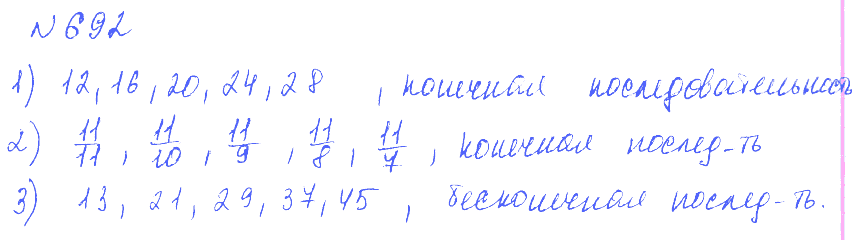 № 692
1) 12, 16, 20, 24, 28 , конечная последовательность
2) 11/11, 11/10, 11/9, 11/8, 11/7, конечная послед-ть
3) 13, 21, 29, 37, 45 , бесконечная послед-ть.